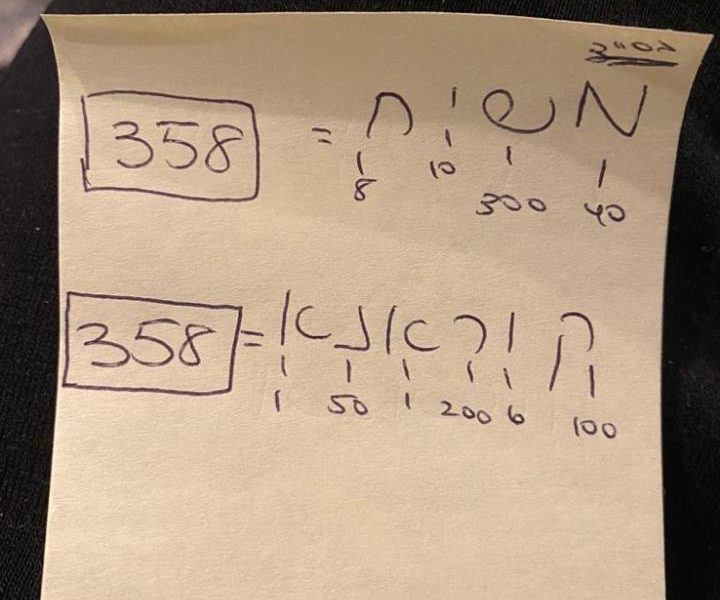 בס"ד
358 = משיח
8 10 300 40
358 = קוראנא
1 50 1 200 6 100